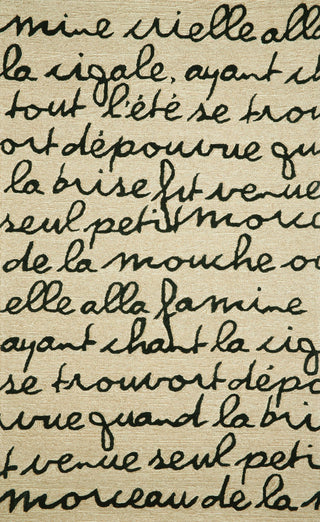 mine crielle alla
la cigale, ayant ch
tout l'été se trou
ort dépourvue qu
la brise fit venue
seul petit morcea
de la mouche ou
elle alla famine
ayant chant la cig
se trouvort dépo
uvue quand la bri
t venue seul peti
morceau de la m